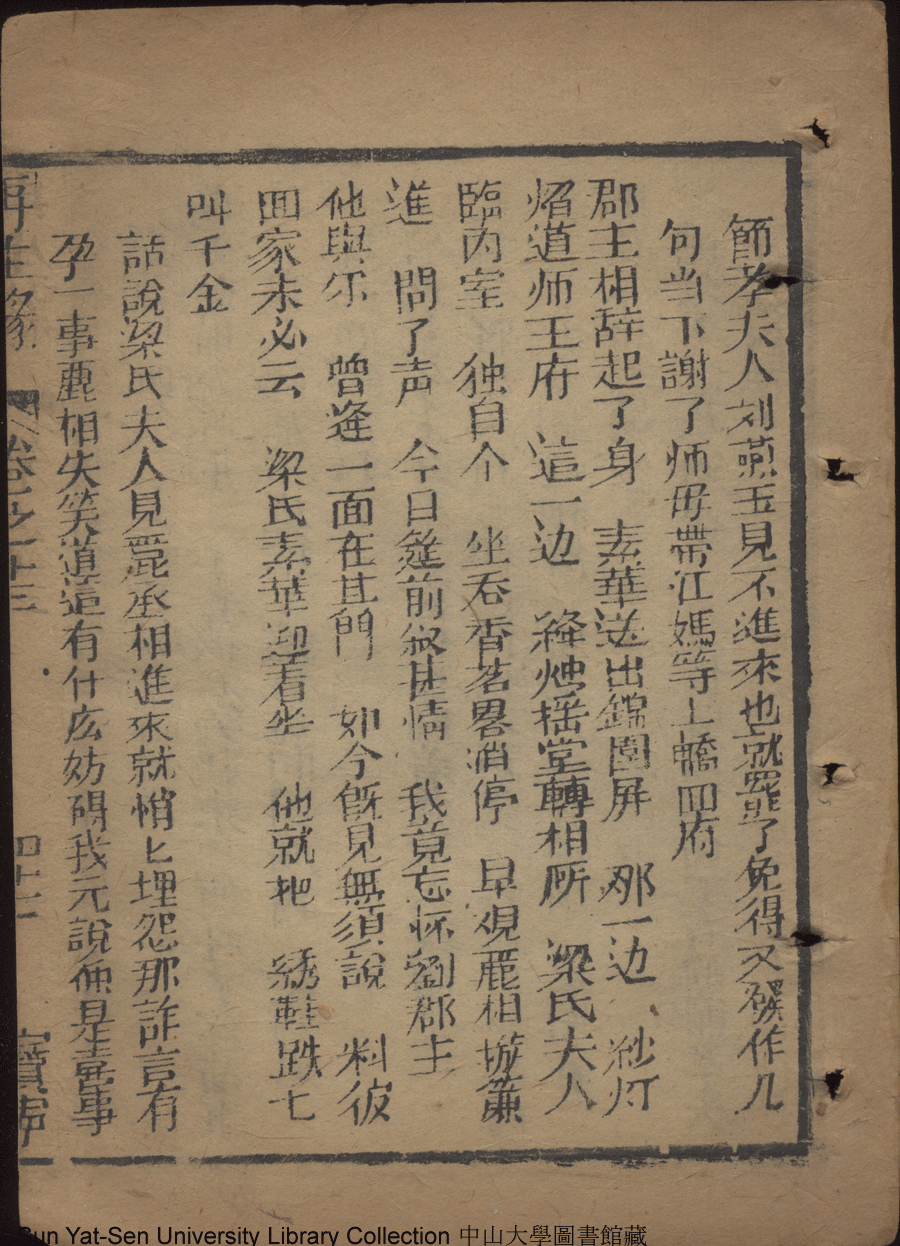 節孝夫人刘燕玉見不進來也就罷了免得又礙作几
句当下謝了师毋帶江媽等上轎囬府
郡主相辞起了身　素華送出錦圍屏　那一边　紗灯
焰道师王府　這一边　絳烛摇堂轉相所　梁氏夫人
臨内室　独自个　坐吞香茗畧消停　早覌麗相掀簾
進　問了声　今日筵前叙甚情　我竟忘怀劉郡主
他與尔　曾逢一面在其門　如今旣見無須說　料彼
囬家未必云　梁氏素華迎着坐　他就把　綉鞋跌七
叫千金
話說梁氏夫人見罷丞相進來就悄匕埋怨那詐言有
孕一事鹿相失笑道這有什庅妨碍我元說他是喜事
再生緣　卷之十三　四十二　寶寧
Sun Yat-Sen University Library Collection 中山大學圖書館藏